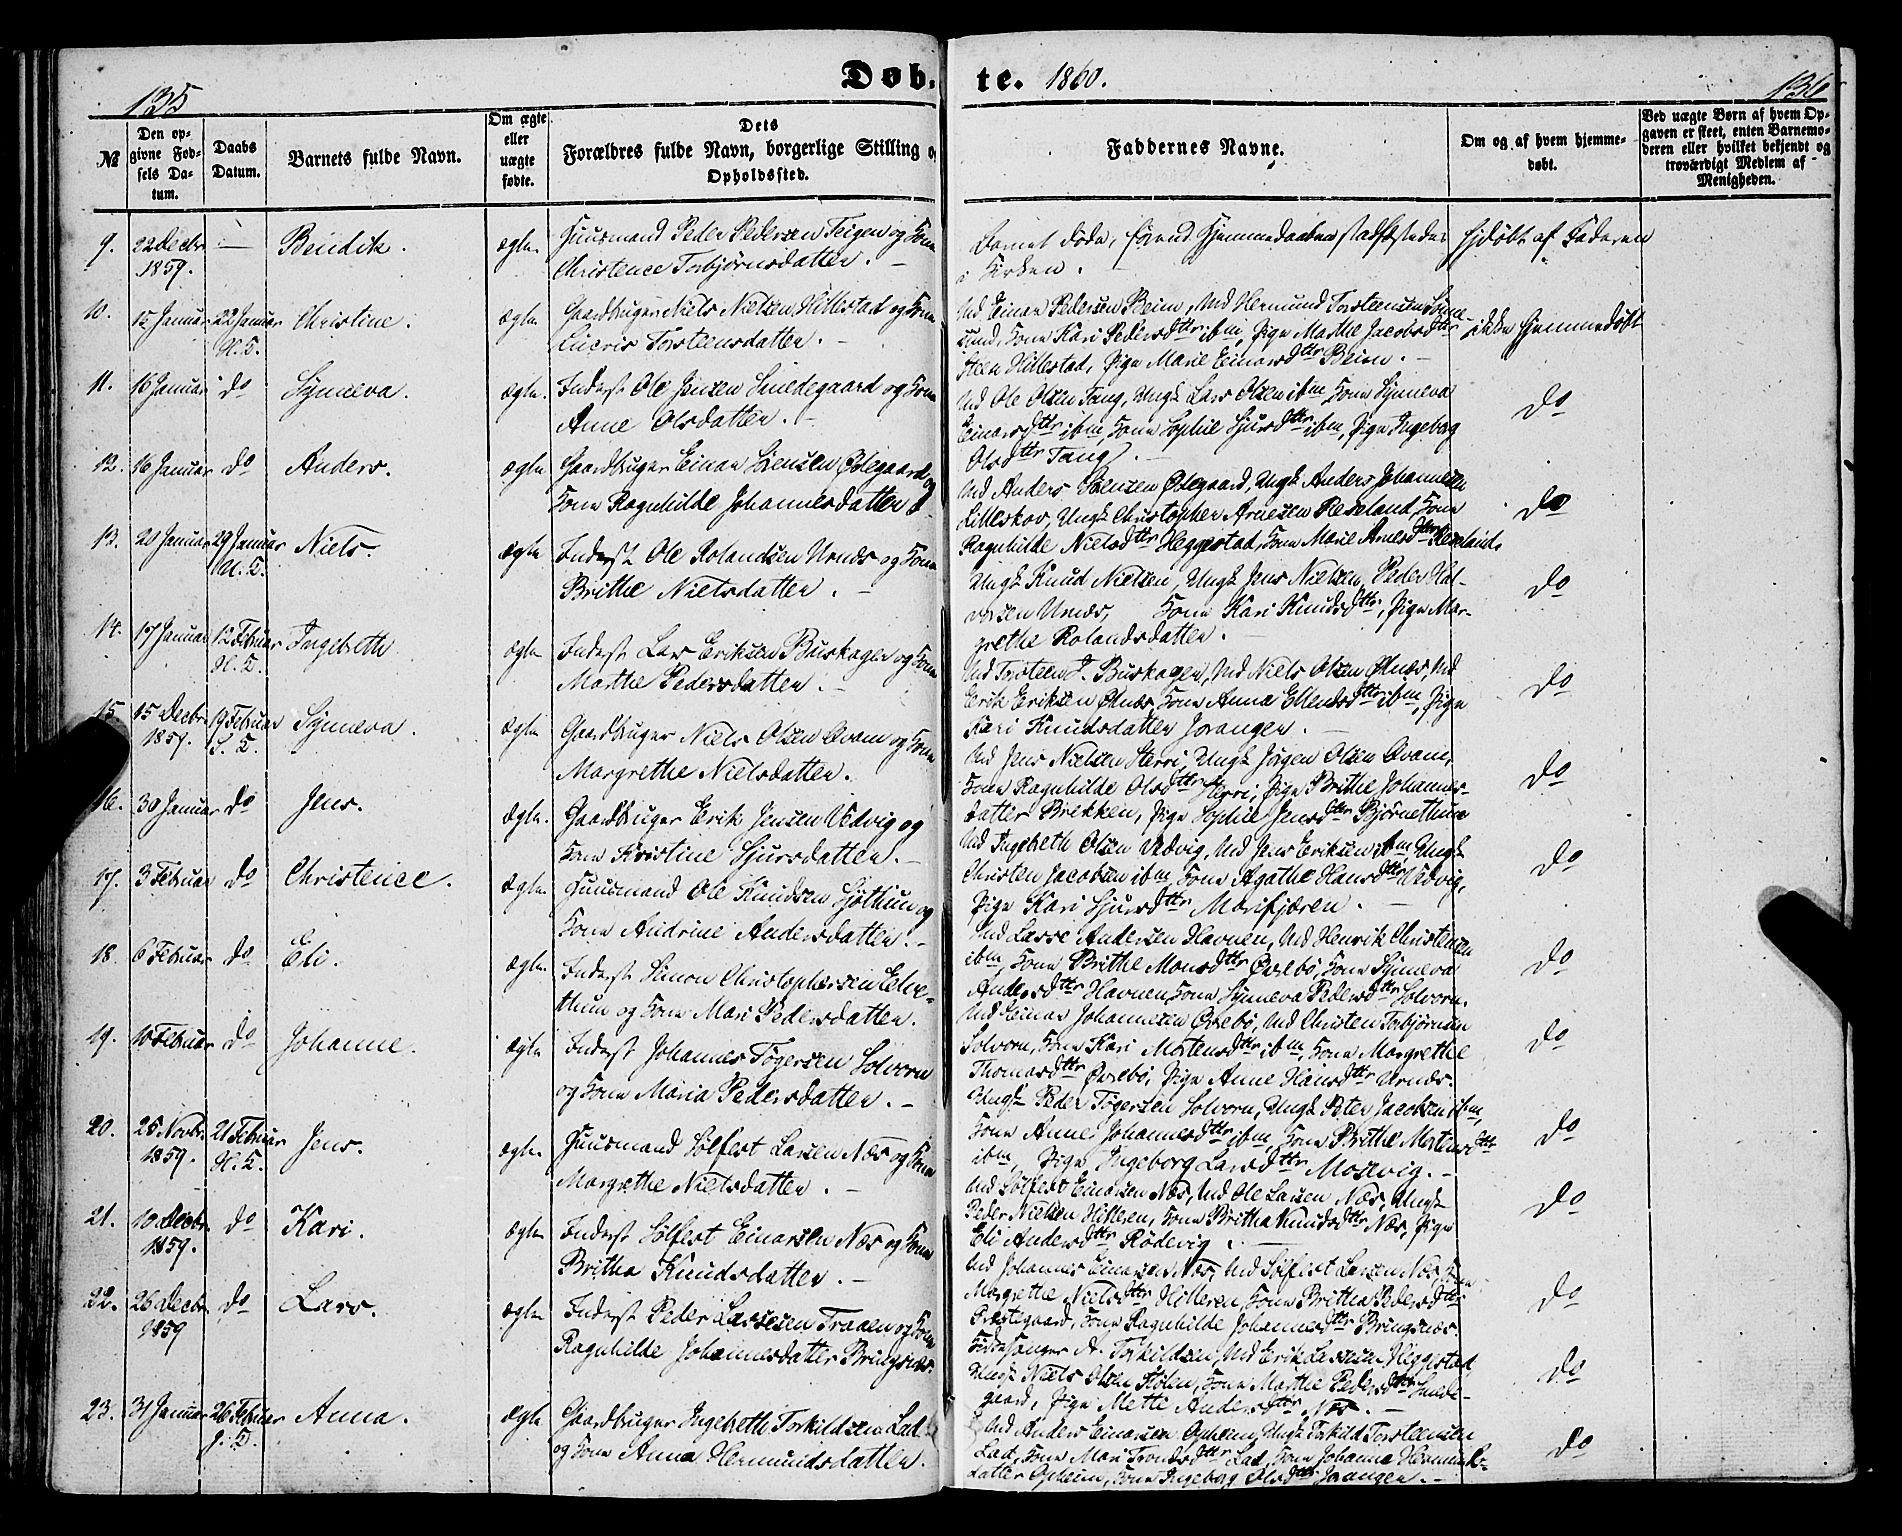 135
Døb-
te. 1860.
136
№
Den opgivne Fødsels Datum.
Daabs Datum.
Barnets fulde Navn.
Om ægte eller uægte fødte.
Dets Forældres fulde Navn, borgerlige Stilling og Opholdssted.
Faddernes Navne.
Om og af hvem hjemmedøbt.
Ved uægte Børn af hvem Opgaven er skeet, enten Barnemoderen eller hvilket bekjendt og troværdigt Medlem af Menigheden.
9. 22 Decbr 1859. — Bendik. ægte.
Huusmand Peder Pedersen Teigen og Kone
Christence Torbjørnsdatter. —
Barnet døde, førend Hjemmedaaben stadfæstedes
i Kirken.
Hjdøbt af Faderen
10. 15 Januar 22 Januar H.T. Christine. ægte.
Gaardbruger Niels Nielsen Hillestad og Kone
Lucris Torsteensdatter. —
Md Einar Pedersen Beim, Md Hermund Torsteensen
Kone Kari Pedersdttr ibm, Pige Marthe Jacobsdttr
Hillestad, Pige Marie Einarsdttr Beim. —
ikke hjemmedøbt
11. 16 Januar do Synneva. ægte.
Inderst Ole Jensen Smedegaard og Kone
Anne Olsdatter. —
Md Ole Olsen Tang, Ungk Lars Olsen ibm, Kone Synneva
Einarsdttr ibm, Kone Sophie Sjursdttr ibm, Pige Ingeborg
Olsdttr Tang. —
do
12. 16 Januar do Anders. ægte
Gaardbruger Einar Ødegaard og
Kone Ragnhilde Johannesdatter
Md Anders Ødegaard, Ungk Anders Johannesen
Lilleskov, Ungk Christopher Arnesen Reseland, Kone
Ragnhilde Nielsdttr Heggestad, Kone Marie Arnesdttr Reseland.
do
13. 20 Januar 29 Januar Niels. ægte
Inderst Ole Rolandsen Urnes og Kone
Brithe Nielsdatter. —
Ungk Knud Nielsen, Ungk Jens Nielsen, Peder Hal-
vorsen Urnes, Kone Kari Knudsdttr, Pige Mar-
grethe Rolandsdatter.
do
14. 17 Januar 12 Februar H.T. Ingebreth ægte
Inderst Lars Eriksen Buskagen og Kone
Marthe Pedersdatter. —
Md Torsteen J. Buskagen, Md Niels Olsen Ønes, Md
Erik Eriksen Ønes, Kone Anna Ellensdttr ibm, Pige
Kari Knudsdatter Joranger. —
do
15. 15 Decbr 1859. 19 Februar S.T. Synneva. ægte
Gaardbruger Niels Olsen Qvam og Kone
Margrethe Nielsdatter.
Md Jens Nielsen Herri, Ungk Jørgen Olsen Qvam,
Kone Ragnhilde Olsdttr Herri, Pige Brithe Johannes-
datter Brekken, Pige Sophie Jensdttr Bjørnethun
do
16. 30 Januar do Jens. ægte.
Gaardbruger Erik Jensen Vedvig og
Kone Kristine Sjursdatter. —
Md Ingebreth Olsen Vedvig, Md Jens Eriksen ibm, Ungk
Christen Jacobsen ibm, Kone Agathe Hansdttr Vedvig,
Pige Kari Sjursdttr Marifjæren. —
do
17. 3 Februar do Christence. ægte.
Huusmand Ole Knudsen Sjøthun og
Kone Andrine Andersdatter. —
Md Lasse Andersen Havnen, Md Henrik Christensen
ibm, Kone Brithe Monsdttr Øvrebø, Kone Synneva
Andersdttr Havnen, Kone Synneva Pedersdttr Solvorn.
do
18. 6 Februar do Eli. ægte.
Inderst Simon Christophersen Elve-
thun og Kone Mari Pedersdatter.
Md Einar Johannesen Øvrebø, Md Christen Torbjørnsen
Solvorn, Kone Kari Mortensdttr ibm, Kone Margrethe
Thomasdttr Øvrebø, Pige Anne Hansdttr Urnes.
do
19. 10 Februar do Johanne. ægte
Inderst Johannes Tøgersen Solvorn
og Kone Maria Pedersdatter. —
Ungk Peder Tøgersen Solvorn, Ungk Peter Jacobsen ibm,
Kone Anne Johannesdttr ibm, Kone Brithe Mortensdttr
ibm, Pige Ingeborg Larsdttr Moltvig. —
do
20. 25 Novbr. 1859. 21 Februar H.T. Jens. ægte.
Huusmand Sølfest Larsen Næs og Kone
Margrethe Nielsdatter. —
Md Sølfest Einarsen Næs, Md Ole Larsen Næs, Ungk
Peder Nielsen Hilleren, Kone Britha Knudsdttr Næs, Pige
Eli Andersdttr Rødevig. —
do
21. 10 Decbr. 1859. do Kari. ægte
Inderst Sølfest Einarsen Næs og Kone
Britha Knudsdatter. —
Md Johannes Einarsen Næs, Md Sølfest Larsen Næs, Kone
Margrethe Nielsdttr Hilleren, Kone Britha Pedersdttr
Præstegaard, Kone Ragnhilde Johannesdttr Bringsnæs.
do
22. 26 Decbr 1859 do Lars. ægte.
Inderst Peder Lassesen Traaen og Kone
Ragnhilde Johannesdatter Bringsnæs.
Kirkesanger A. Torkildsen, Md Erik Lassesen Heggestad,
Ungk Niels Olsen Kone Marthe Pedersdttr Smede-
gaard, Pige Mette Andersdttr Næs. —
do
23. 31 Januar 26 Februar Anna. ægte
Gaardbruger Ingebreth Torkildsen Lad
og Kone Anna Hermundsdatter.
Md Anders Einarsen Opheim, Ungk Torkild Torsteensen
Lad, Kone Mari Trondsdttr Lad, Kone Johanna Hermunds-
datter Opheim, Kone Ingeborg Olsdttr Joranger. —
do